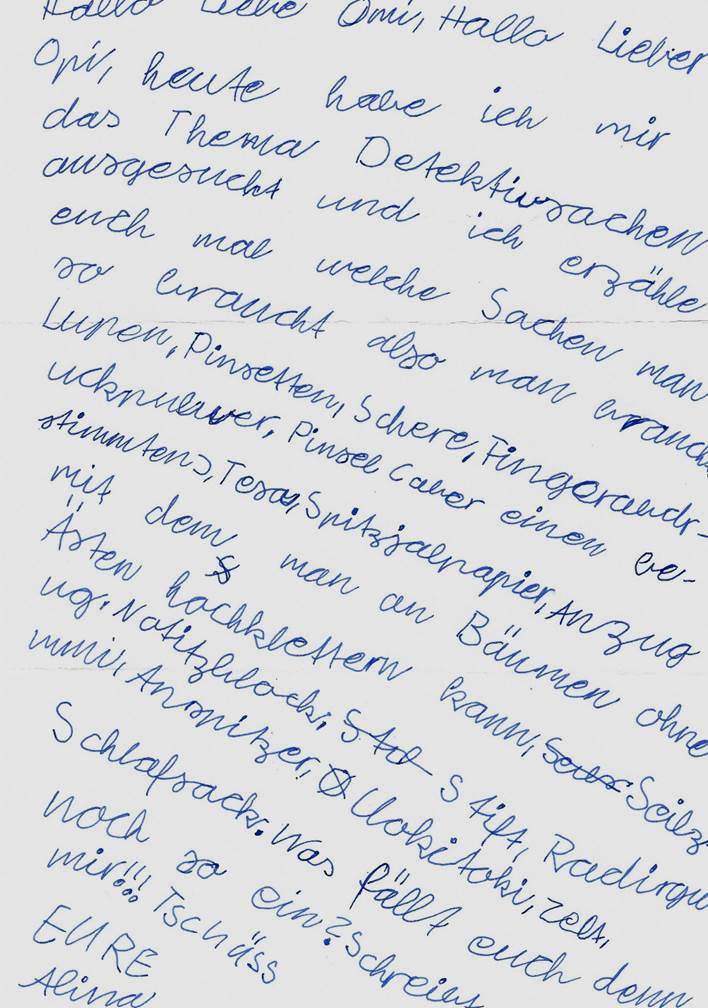 Hallo Liebe Omi, Hallo Lieber
Opi, heute habe ich mir
das Thema Detektivsachen
ausgesucht und ich erzähle
euch mal welche Sachen man
so braucht also man brauch
Lupen, Pinsetten, Schere, Fingerabdr-
uckpulwer, Pinsel (aber einen be-
stimmten), Tesa, Spitzialpapier, Anzug
mit dem man an Bäumen ohne
Ästen hochklettern kann, Seilz
ug. Notitzblock, Stift, Radirgu
mmi, Anspitzer, Uokitoki, Zelt,
Schlafsack. Was fällt euch denn
noch so ein? Schreibt
mir!!! Tschüss
EURE
Alina